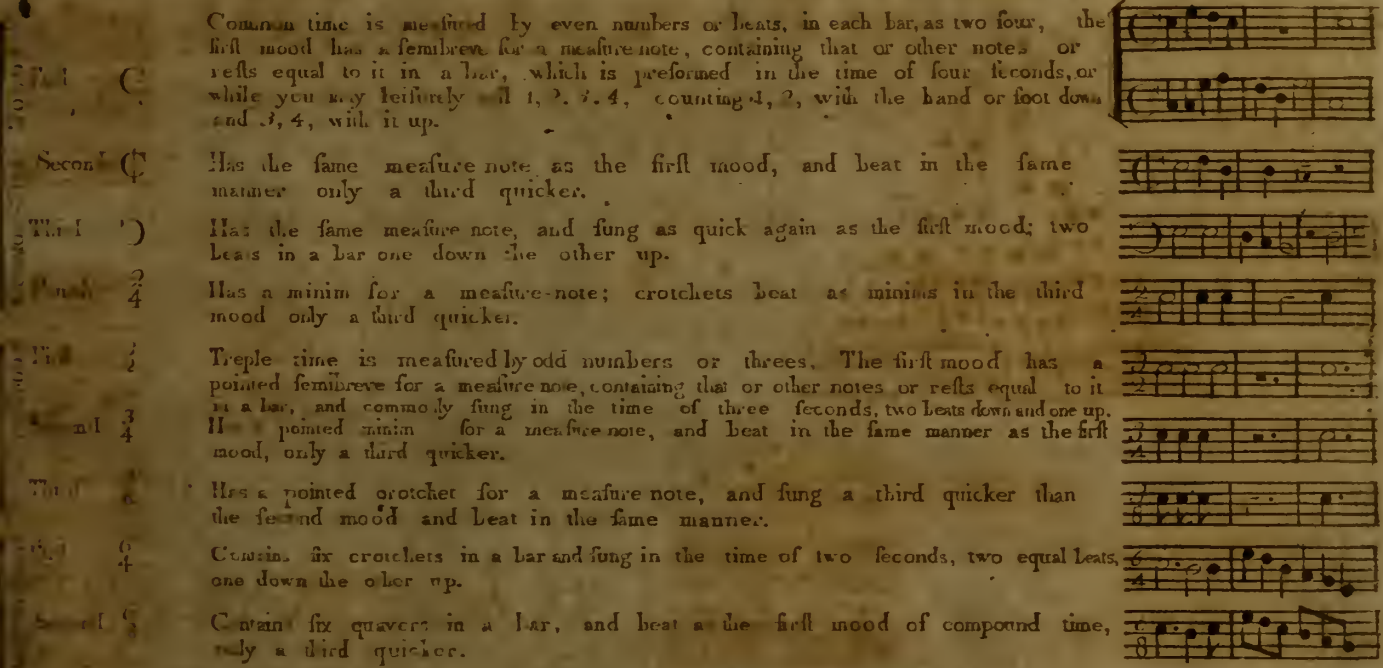 Common time is meaſured by even numbers or beats, in each bar, as two four, the
firſt mood has a ſemibreve for a meaſure note, containing that or other notes or
reſts equal to it in a bar, which is preformed in the time of four ſeconds, or
while you may leiſurely 1, 2, 3, 4, counting 1, 2, with the hand or foot down
and 3, 4, with it up.
Second Has the ſame meaſure note as the firſt mood, and beat in the ſame
manner only a third quicker.
Third Has the ſame meaſure note, and ſung as quick again as the firſt mood; two
beats in a bar one down the other up.
2/4 Has a minim for a meaſure-note; crotchets beat as minims in the third
mood only a third quicker.
Treple time is meaſured by odd numbers or threes. The firſt mood has a
pointed ſemibreve for a meaſure note, containing that or other notes or reſts equal to it
in a bar, and commonly ſung in the time of three ſeconds, two beats down and one up.
3/4 pointed minim for a meaſure note, and beat in the ſame manner as the firſt
mood, only a third quicker.
Third Has a pointed crotchet for a meaſure note, and ſung a third quicker than
the ſecond mood and beat in the ſame manner.
6/4 Contains ſix crotchets in a bar and ſung in the time of two ſeconds, two equal beats,
one down the other up.
Contains ſix quavers in a bar, and beat as the firſt mood of compound time,
only a third quicker.
2/4
3/2
3/4
3/8
6/4
6/8